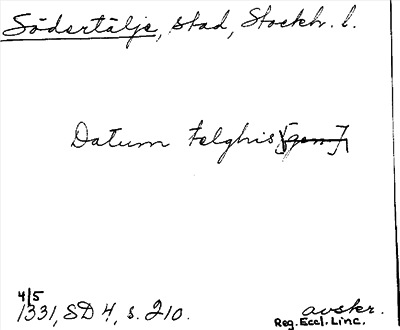 Södertälje, stad, Stockh. l.
Datum telghis [gen]
4/5
1331, SD 4, s. 210.
avskr.
Reg. Eccl. Linc.